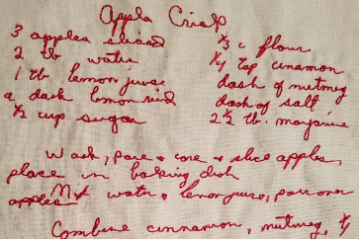 Appla Crisp
3 apples sliced
2 tb water
1 tb lemon juice
a dash lemon rind
1/2 cup sugar
1/3 c flour
1/4 tsp cinamon
dash of nutmeg
dash of salt
2 1/2 tb. margarine
Wash, pare + core + slice apples,
place in baking dish
Mix water + lemon juice, pour over
apples
Combine cinnamon, nutmeg, 1/4